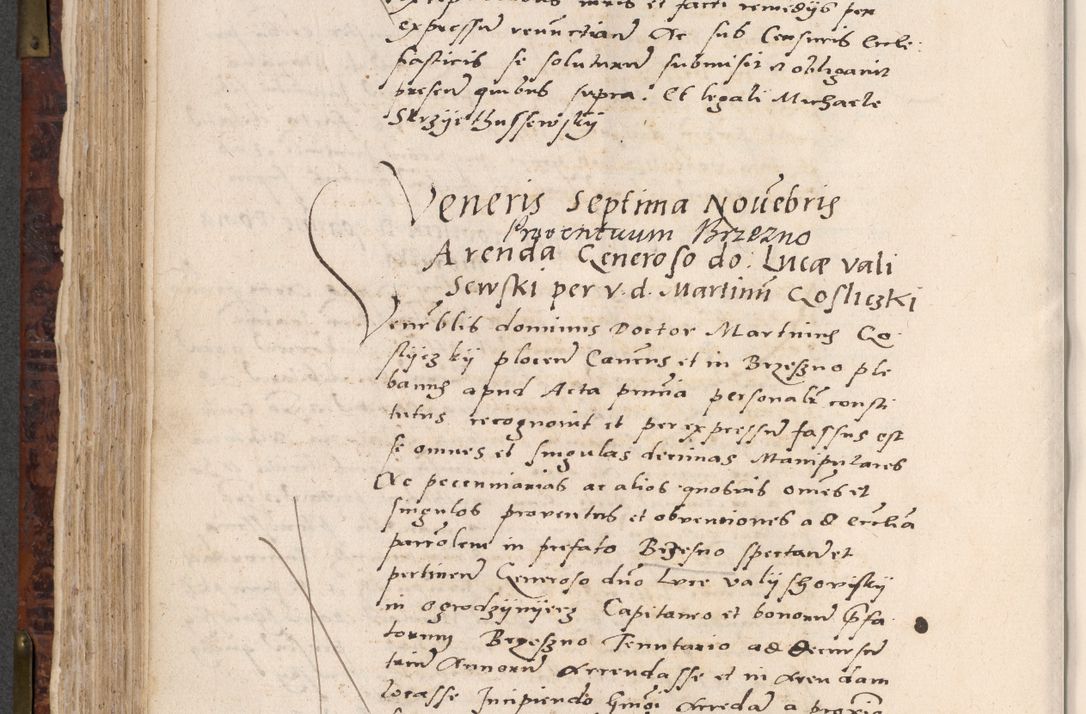 juris et facti remedijs per
expressu renunctian Ac sub Censuris Eccle
siasticis se soluturum submisit et obligavit
presen quibus supra. Et legali Michaele
Skrzijethussewskij
Veneris Septima Novebris
Proventuum Brzezno
Arenda Generoso do: Lucæ vali
sewski per v. d. Martinu Gosliczki
Venerblis dominus Doctor Martinus Go
slijczkij plocen Cancus et in Brzeszno ple
banus apud Acta pnia personalr consti
tutus recognovit et per expressu fassus est
se omnes et singulas decimas Manipulares
Ac pecuniarias ac alios quosvis omes et
singulos proventus et obventiones ad Eccliã
parrolem in prefato Brzesno spectan et
pertinen Generoso dño Luce valijskowskij
in ogrodzijnijecz Capitaneo et bonorum prefa
torum Brzeszno Tenutario ad decursu
trium Annorum Arrendasse et in Arendam
locasse Incipiendo hmoi Arredam a proxia